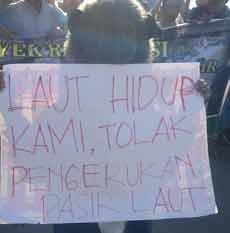 LAUT HIDUP
KAMI, TOLAK
PENGERUKAN
PASIR LAUT